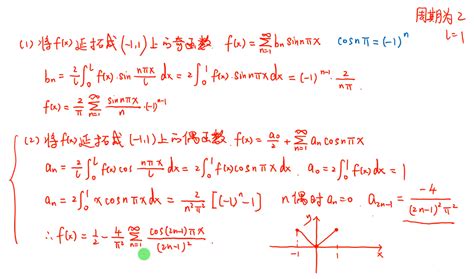 周期为2
l=1
(1) 将f(x)延拓成(-1,1)上的奇函数 f(x)=∑_{n=1}^{∞} b_n sin nπx cos nπ=(-1)^n
b_n = 2/l ∫_0^l f(x)·sin (nπx/l) dx = 2∫_0^1 f(x)·sin nπx dx = (-1)^{n-1}·2/(nπ)
f(x)= 2/π ∑_{n=1}^{∞} (sin nπx)/n ·(-1)^{n-1}
(2) 将f(x)延拓成(-1,1)上的偶函数 f(x)=a_0/2+∑_{n=1}^{∞} a_n cos nπx
a_n = 2/l ∫_0^l f(x) cos (nπx/l) dx = 2∫_0^1 f(x) cos nπx dx. a_0=2∫_0^1 f(x)dx=1
a_n = 2∫_0^1 x cos nπx dx = 2/(n²π²) [(-1)^n-1] n偶时 a_n=0. a_{2n-1}= -4/((2n-1)²π²)
∴ f(x)= 1/2 - 4/π² ∑_{n=1}^{∞} (cos(2n-1)πx)/(2n-1)²
y
-1 1 x